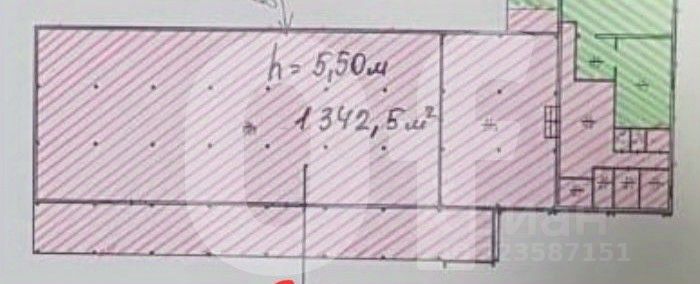 h = 5,50м
1342,5м²
циан
23587151